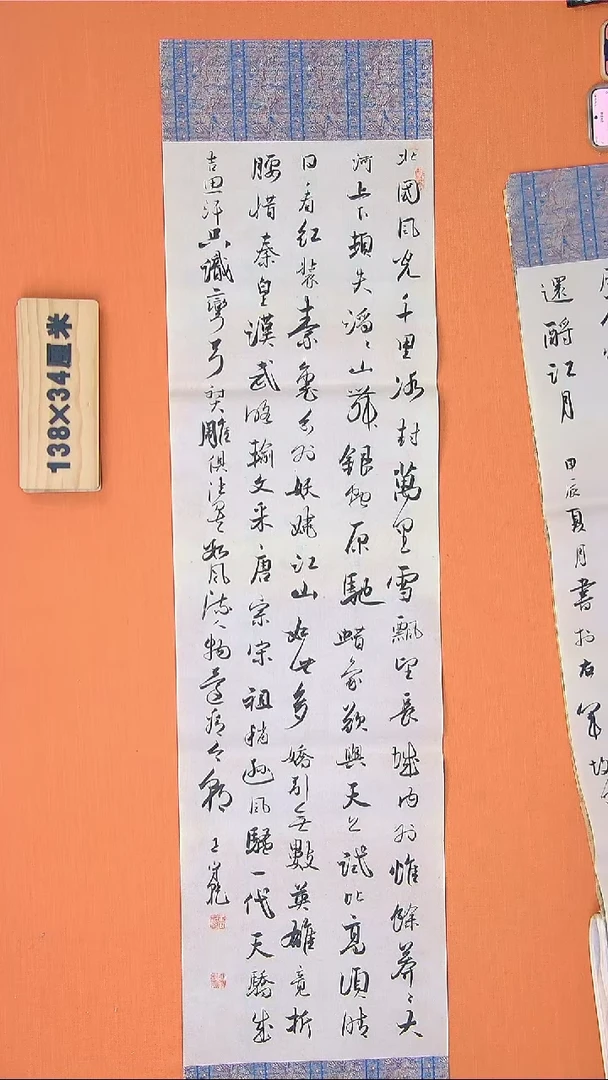 北國風光千里冰封萬里雪飄望長城內外惟餘莽〻大
河上下頓失滔〻山舞銀蛇原馳蜡象欲與天公試比高須晴
日看紅裝素裹分外妖嬈江山如此多嬌引無數英雄竟折
腰惜秦皇漢武略輸文采唐宗宋祖稍遜風騷一代天驕成
吉思汗只識彎弓射大雕俱往矣數風流人物還看今朝 王
138×34厘米
還酹江月 甲辰夏月書於右軍故